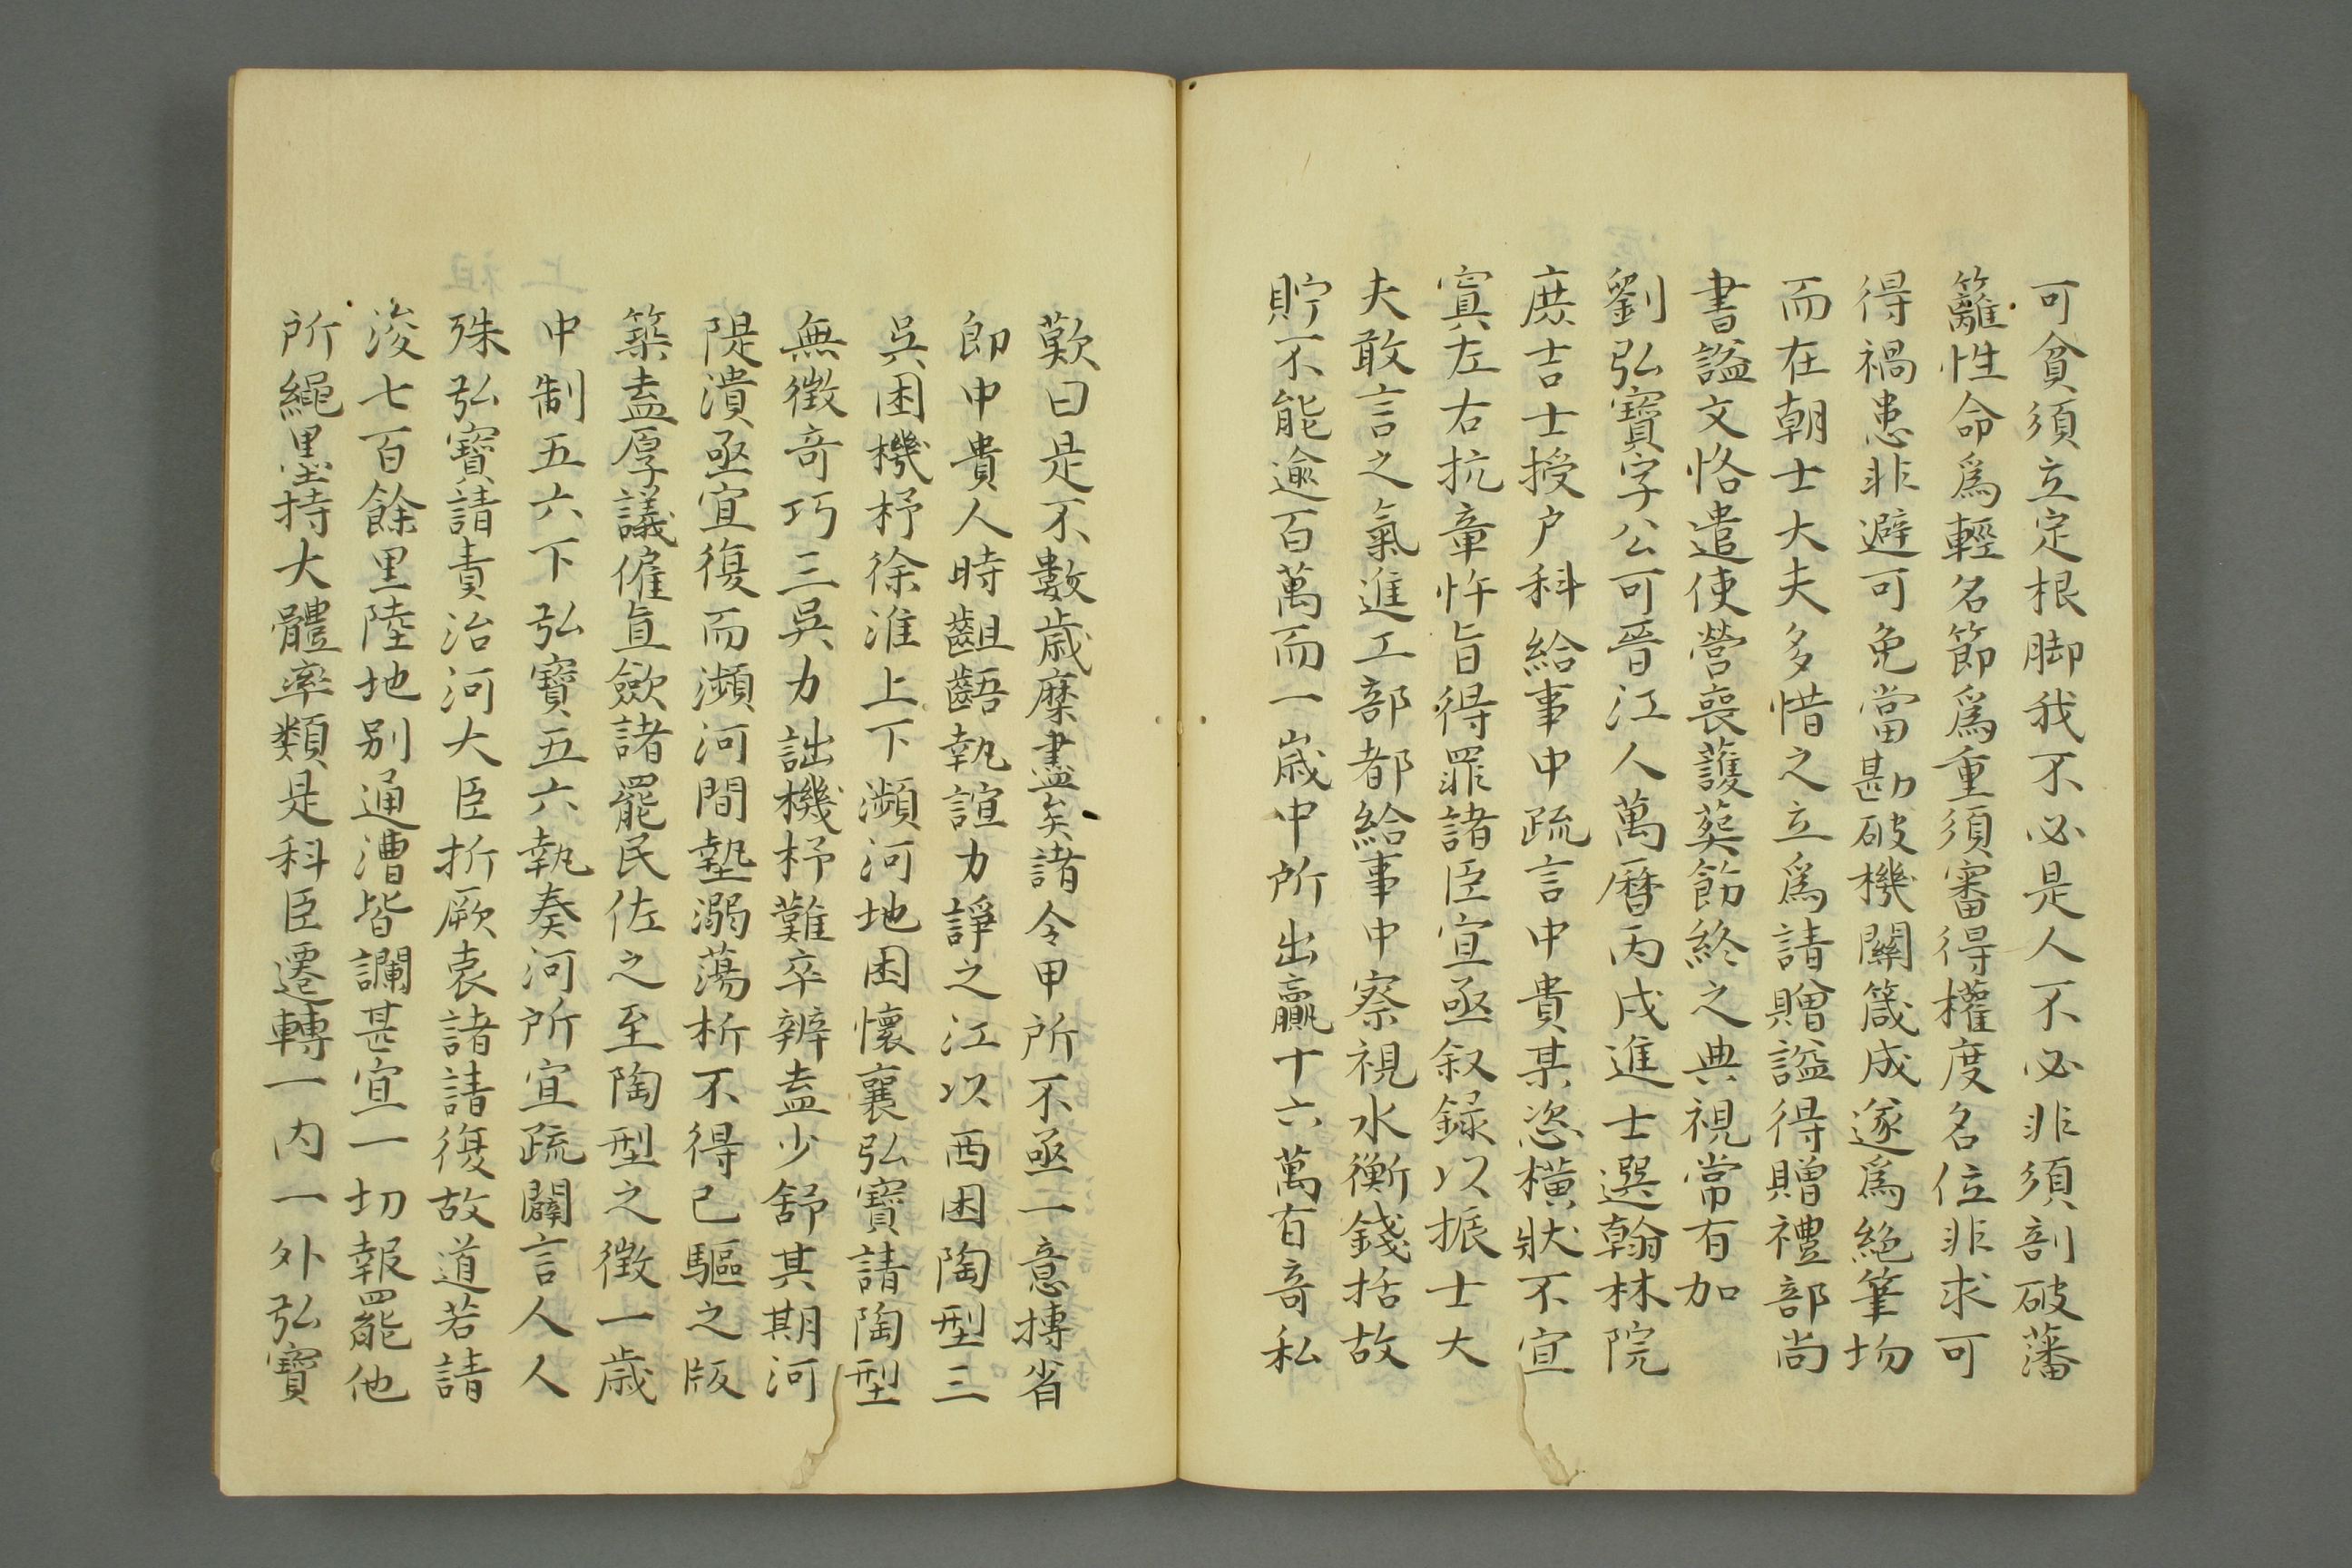 可貧須立定根脚我不必是人不必非須剖破藩
籬性命爲輕名節爲重須審得權度名位非求可
得禍患非避可免當勘破機關箴成遂爲絶筆場
而在朝士大夫多惜之立爲請贈謚得贈禮部尚
書謚文恪遣使營喪護葬飭終之典視常有加
劉弘寶字公可晉江人萬曆丙戌進士選翰林院
庶吉士授户科給事中疏言中貴某恣横狀不宜
寘左右抗章忤旨得罪諸臣宜亟叙録以振士大
夫敢言之氣進工部都給事中察視水衡錢括故
貯不能逾百萬而一歲中所出贏十六萬有竒私
歎曰是不數歲糜盡矣諸令甲所不亟一意摶省
卽中貴人時齟齬執誼力諍之江以西困陶型三
吳困機杼徐淮上下瀕河地困懷襄弘寶請陶型
無徵竒巧三吳力詘機杼難卒辨盍少舒其期河
隄潰亟宜復而瀕河間墊溺蕩析不得已驅之版
築盍厚議僱直歛諸罷民佐之至陶型之徵一歲
中制五六下弘寶五六執奏河所宜疏闢言人人
殊弘寶請責治河大臣折厥衷諸請復故道若請
浚七百餘里陸地别通漕皆讕甚宜一切報罷他
所繩墨持大體率類是科臣遷轉一内一外弘寶